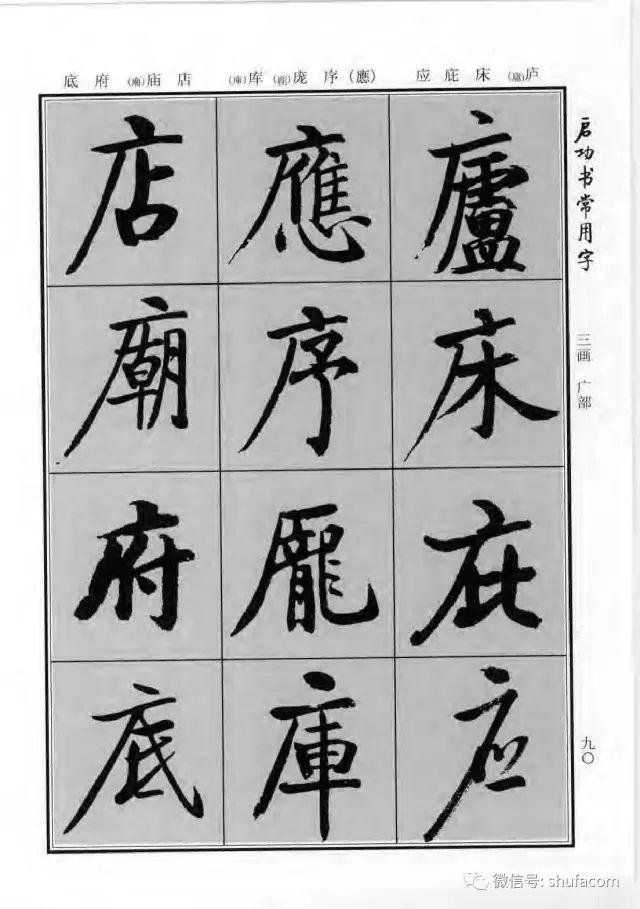 底府(廟)庙店
(庫)库(龐)庞序(應)
应庇床(廬)庐
启功书常用字
三画 广部
廬
床
庇
应
應
序
龐
庫
店
廟
府
底
九〇
微信号: shufacom